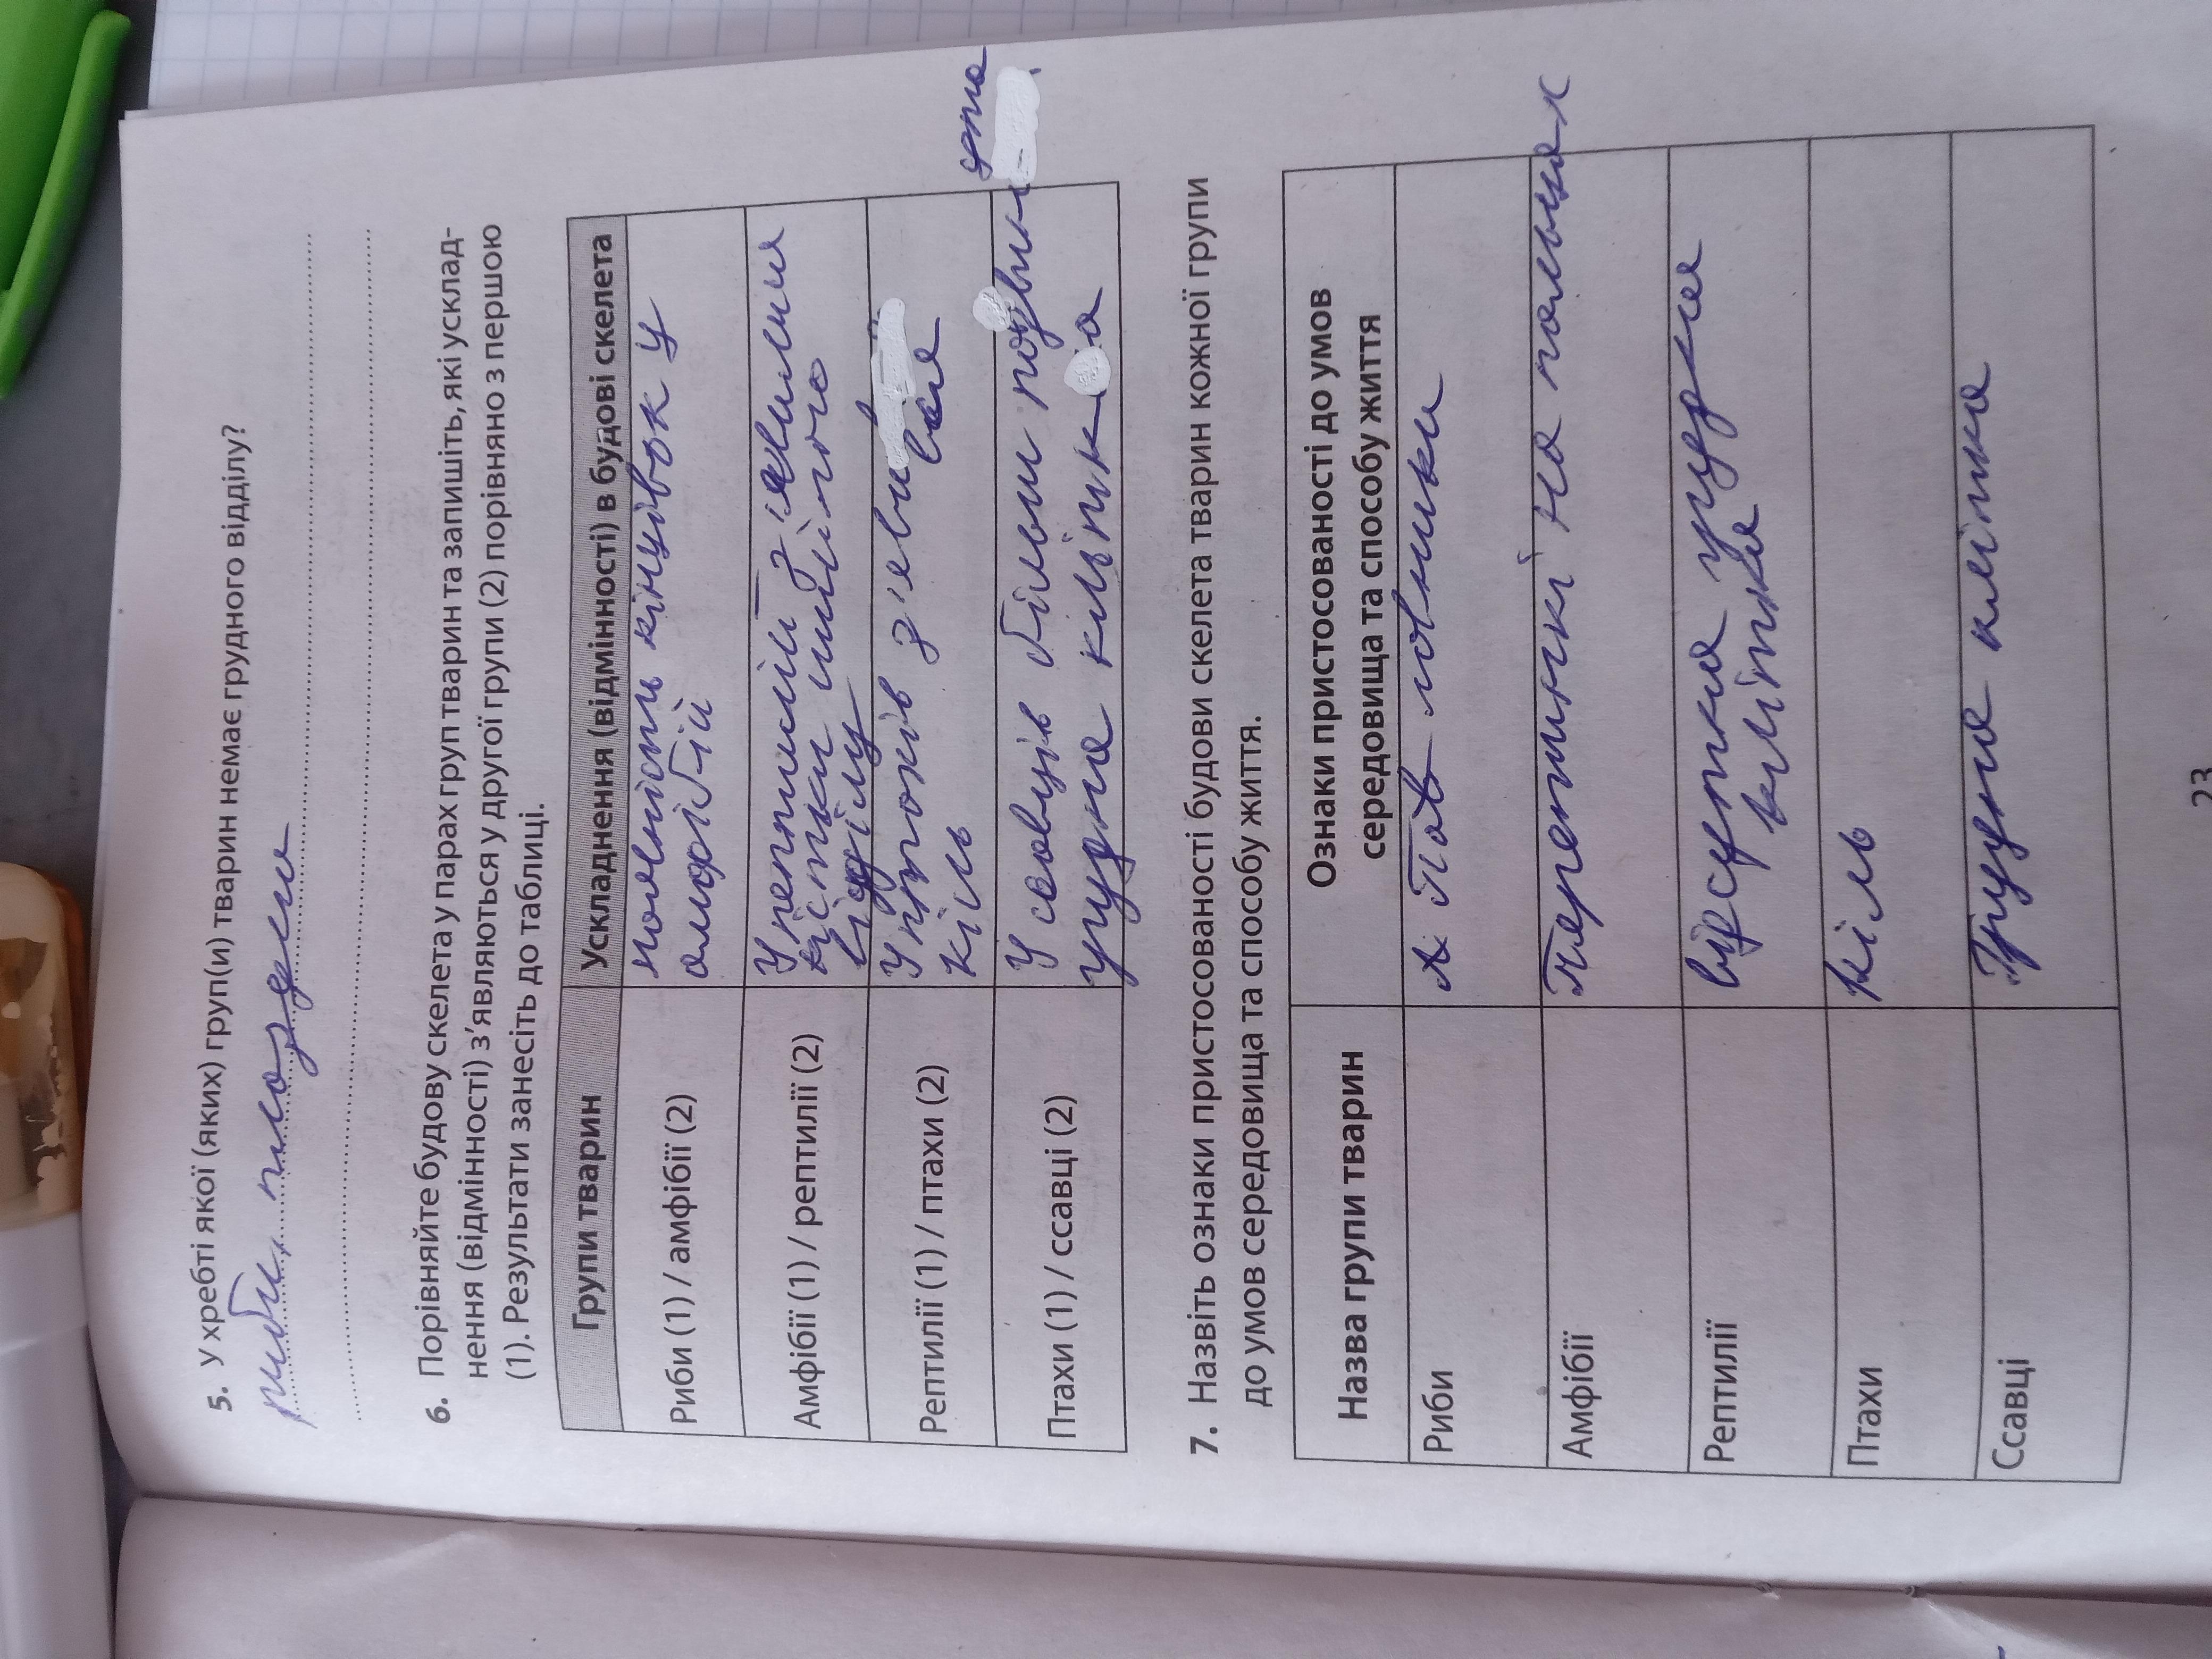 5. У хребті якої (яких) груп(и) тварин немає грудного відділу?
риби, плозуни
6. Порівняйте будову скелета у парах груп тварин та запишіть, які усклад-
нення (відмінності) з’являються у другої групи (2) порівняно з першою
(1). Результати занесіть до таблиці.
Групи тварин
Ускладнення (відмінності) в будові скелета
Риби (1) / амфібії (2)
наявність кінцівок у
амфібій
Амфібії (1) / рептилії (2)
У рептилій з'явилися
кістки шийного
відділу
Рептилії (1) / птахи (2)
У птахів з'яви вся
кіль
Птахи (1) / ссавці (2)
У савців більш
грудна
7. Назвіть ознаки пристосованості будови скелета тварин кожної групи
до умов середовища та способу життя.
Назва групи тварин
Ознаки пристосованості до умов
середовища та способу життя
Риби
плавники
Амфібії
Перетинкі на пальцях
Рептилії
відсутня грудна
клітка
Птахи
кіль
Ссавці
Грудна клітка
23